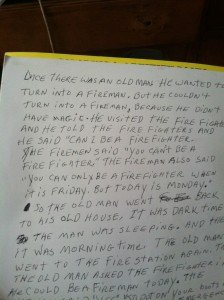 ONCE THERE WAS AN OLD MAN HE WANTED TO
TURN INTO A FIREMAN. BUT HE COULDN'T
TURN INTO A FIREMAN, BECAUSE HE DIDN'T
HAVE MAGIC. HE VISITED THE FIRE FIGHTE
AND HE TOLD THE FIRE FIGHTERS AND
HE SAID "CAN I BE A FIREFIGHTER.
THE FIREMEN SAID "YOU CAN'T BE A
FIRE FIGHTER." THE FIREMAN ALSO SAID
"YOU CAN ONLY BE A FIREFIGHTER WHEN
IT IS FRIDAY. BUT TODAY IS MONDAY."
SO THE OLD MAN WENT BACK
TO HIS OLD HOUSE. IT WAS DARK TIME
THE MAN WAS SLEEPING. AND THE
IT WAS MORNING TIME. THE OLD MAN
WENT TO THE FIRE STATION AGAIN. T
THE OLD MAN ASKED THE FIREFIGHTER I
HE COULD BE A FIREMAN TODAY. THE
ON YOUR